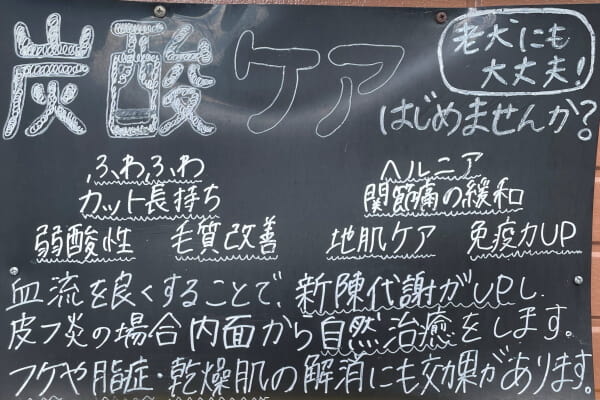 炭酸ケア
老犬にも
大丈夫!
はじめませんか?
ふわふわ
カット長持ち
ヘルニア
関節痛の緩和
弱酸性 毛質改善 地肌ケア 免疫力UP
血流を良くすることで、新陳代謝がUPし、
皮フ炎の場合内面から自然治癒をします。
フケや脂症・乾燥肌の解消にも効果があります。